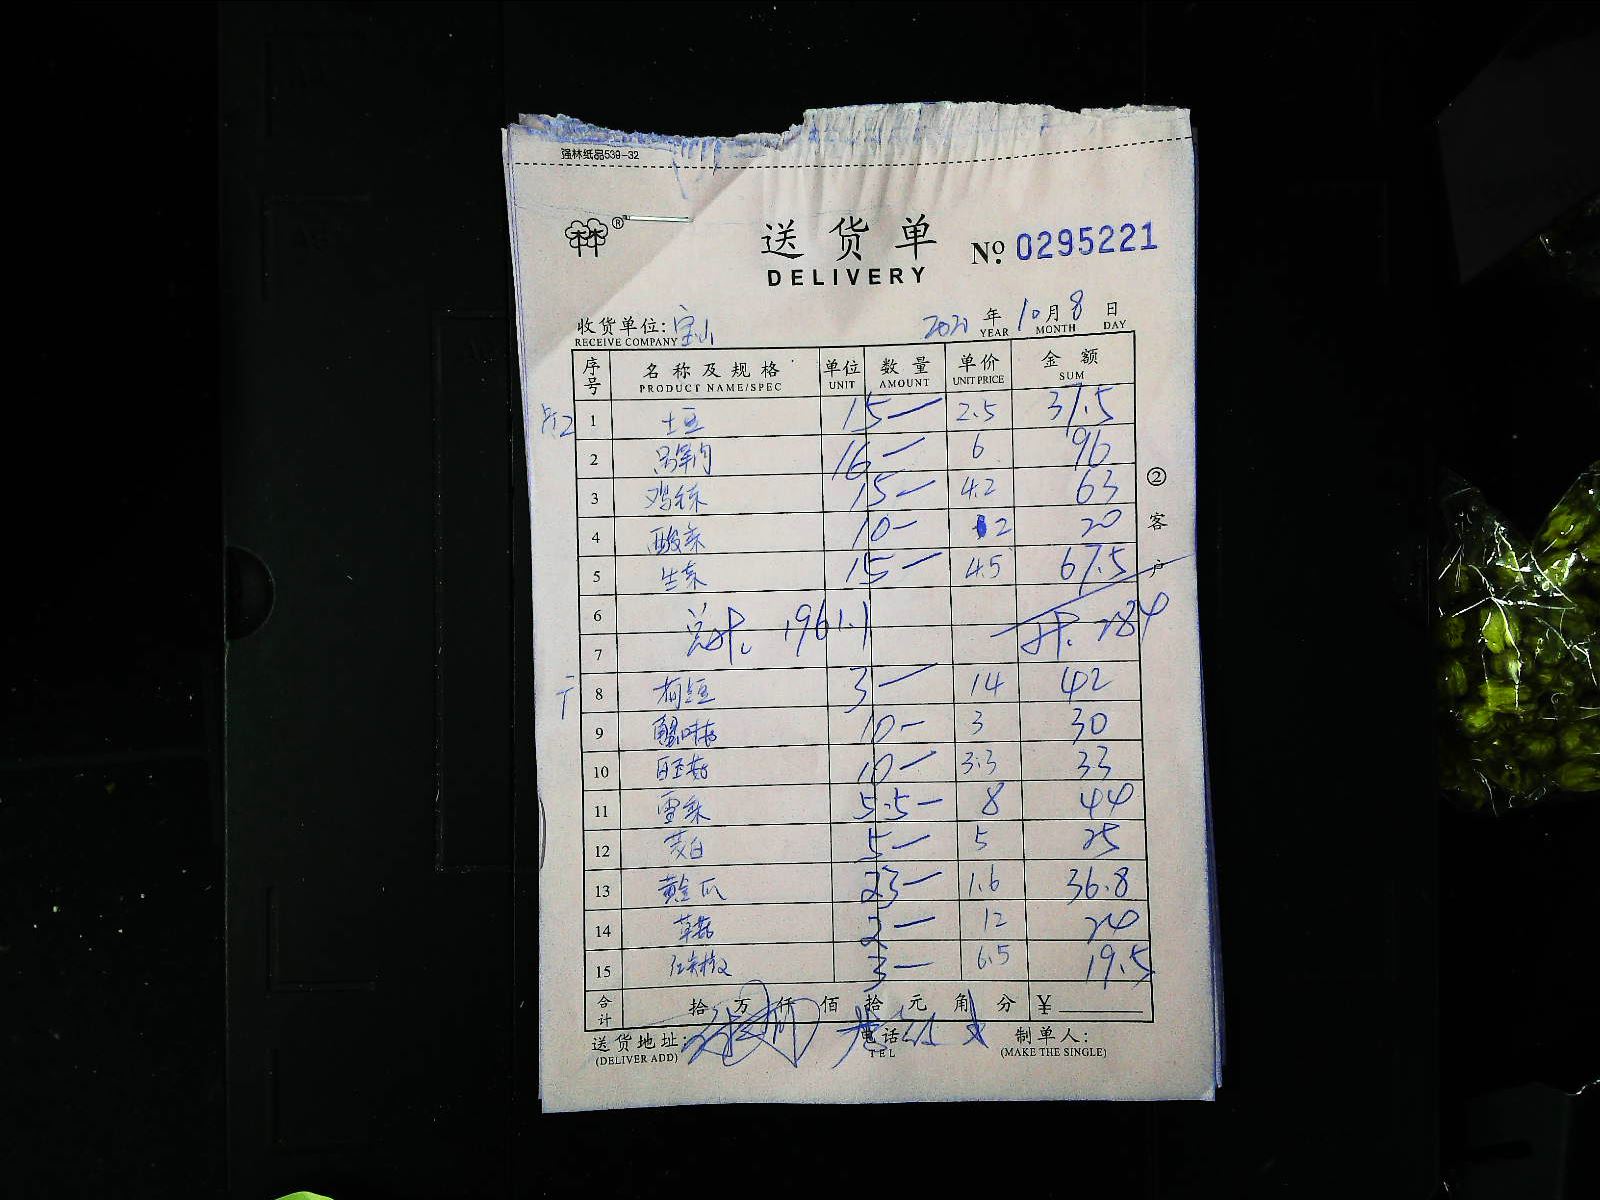 强林纸品539-32
®
送货单 No. 0295221
DELIVERY
收货单位: 宝山 2021 年 10 月 8 日
RECEIVE COMPANY YEAR MONTH DAY
序号 名称及规格 单位 数量 单价 金额
PRODUCT NAME/SPEC UNIT AMOUNT UNIT PRICE SUM
1 土豆 15 2.5 37.5
2 16 6 96
3 15 4.2 63
4 酸菜 10 2 20
5 生菜 15 4.5 67.5
6 总计. 1961.1 计. 284
7
8 3 14 42
9 蟹味菇 10 3 30
10 白玉菇 10 3.3 33
11 雪菜 5.5 8 44
12 茭白 5 5 25
13 黄金瓜 23 1.6 36.8
14 草菇 2 12 24
15 红尖椒 3 6.5 19.5
合计 拾 万 仟 佰 拾 元 角 分 ¥
送货地址: 电话 制单人:
(DELIVER ADD) TEL (MAKE THE SINGLE)
② 客户